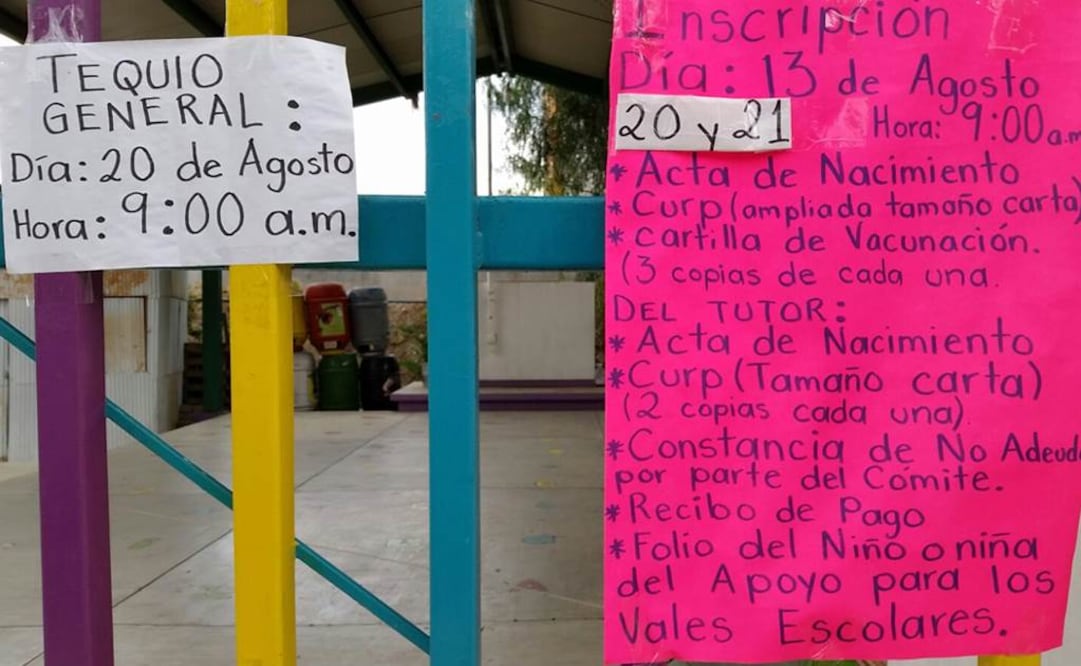 TEQUIO
GENERAL:
Día: 20 de Agosto
Hora: 9:00 a.m.
Inscripción
Día: 13 de Agosto
20 y 21 Hora: 9:00 a.m
* Acta de Nacimiento
* Curp (ampliada tamaño carta)
* cartilla de Vacunación.
(3 copias de cada una.
DEL TUTOR:
* Acta de Nacimiento
* Curp (Tamaño carta)
(2 copias cada una).
* Constancia de No Adeud
por parte del Cómite.
* Recibo de Pago
* Folio del Niño o niña
del Apoyo para los
Vales Escolares.